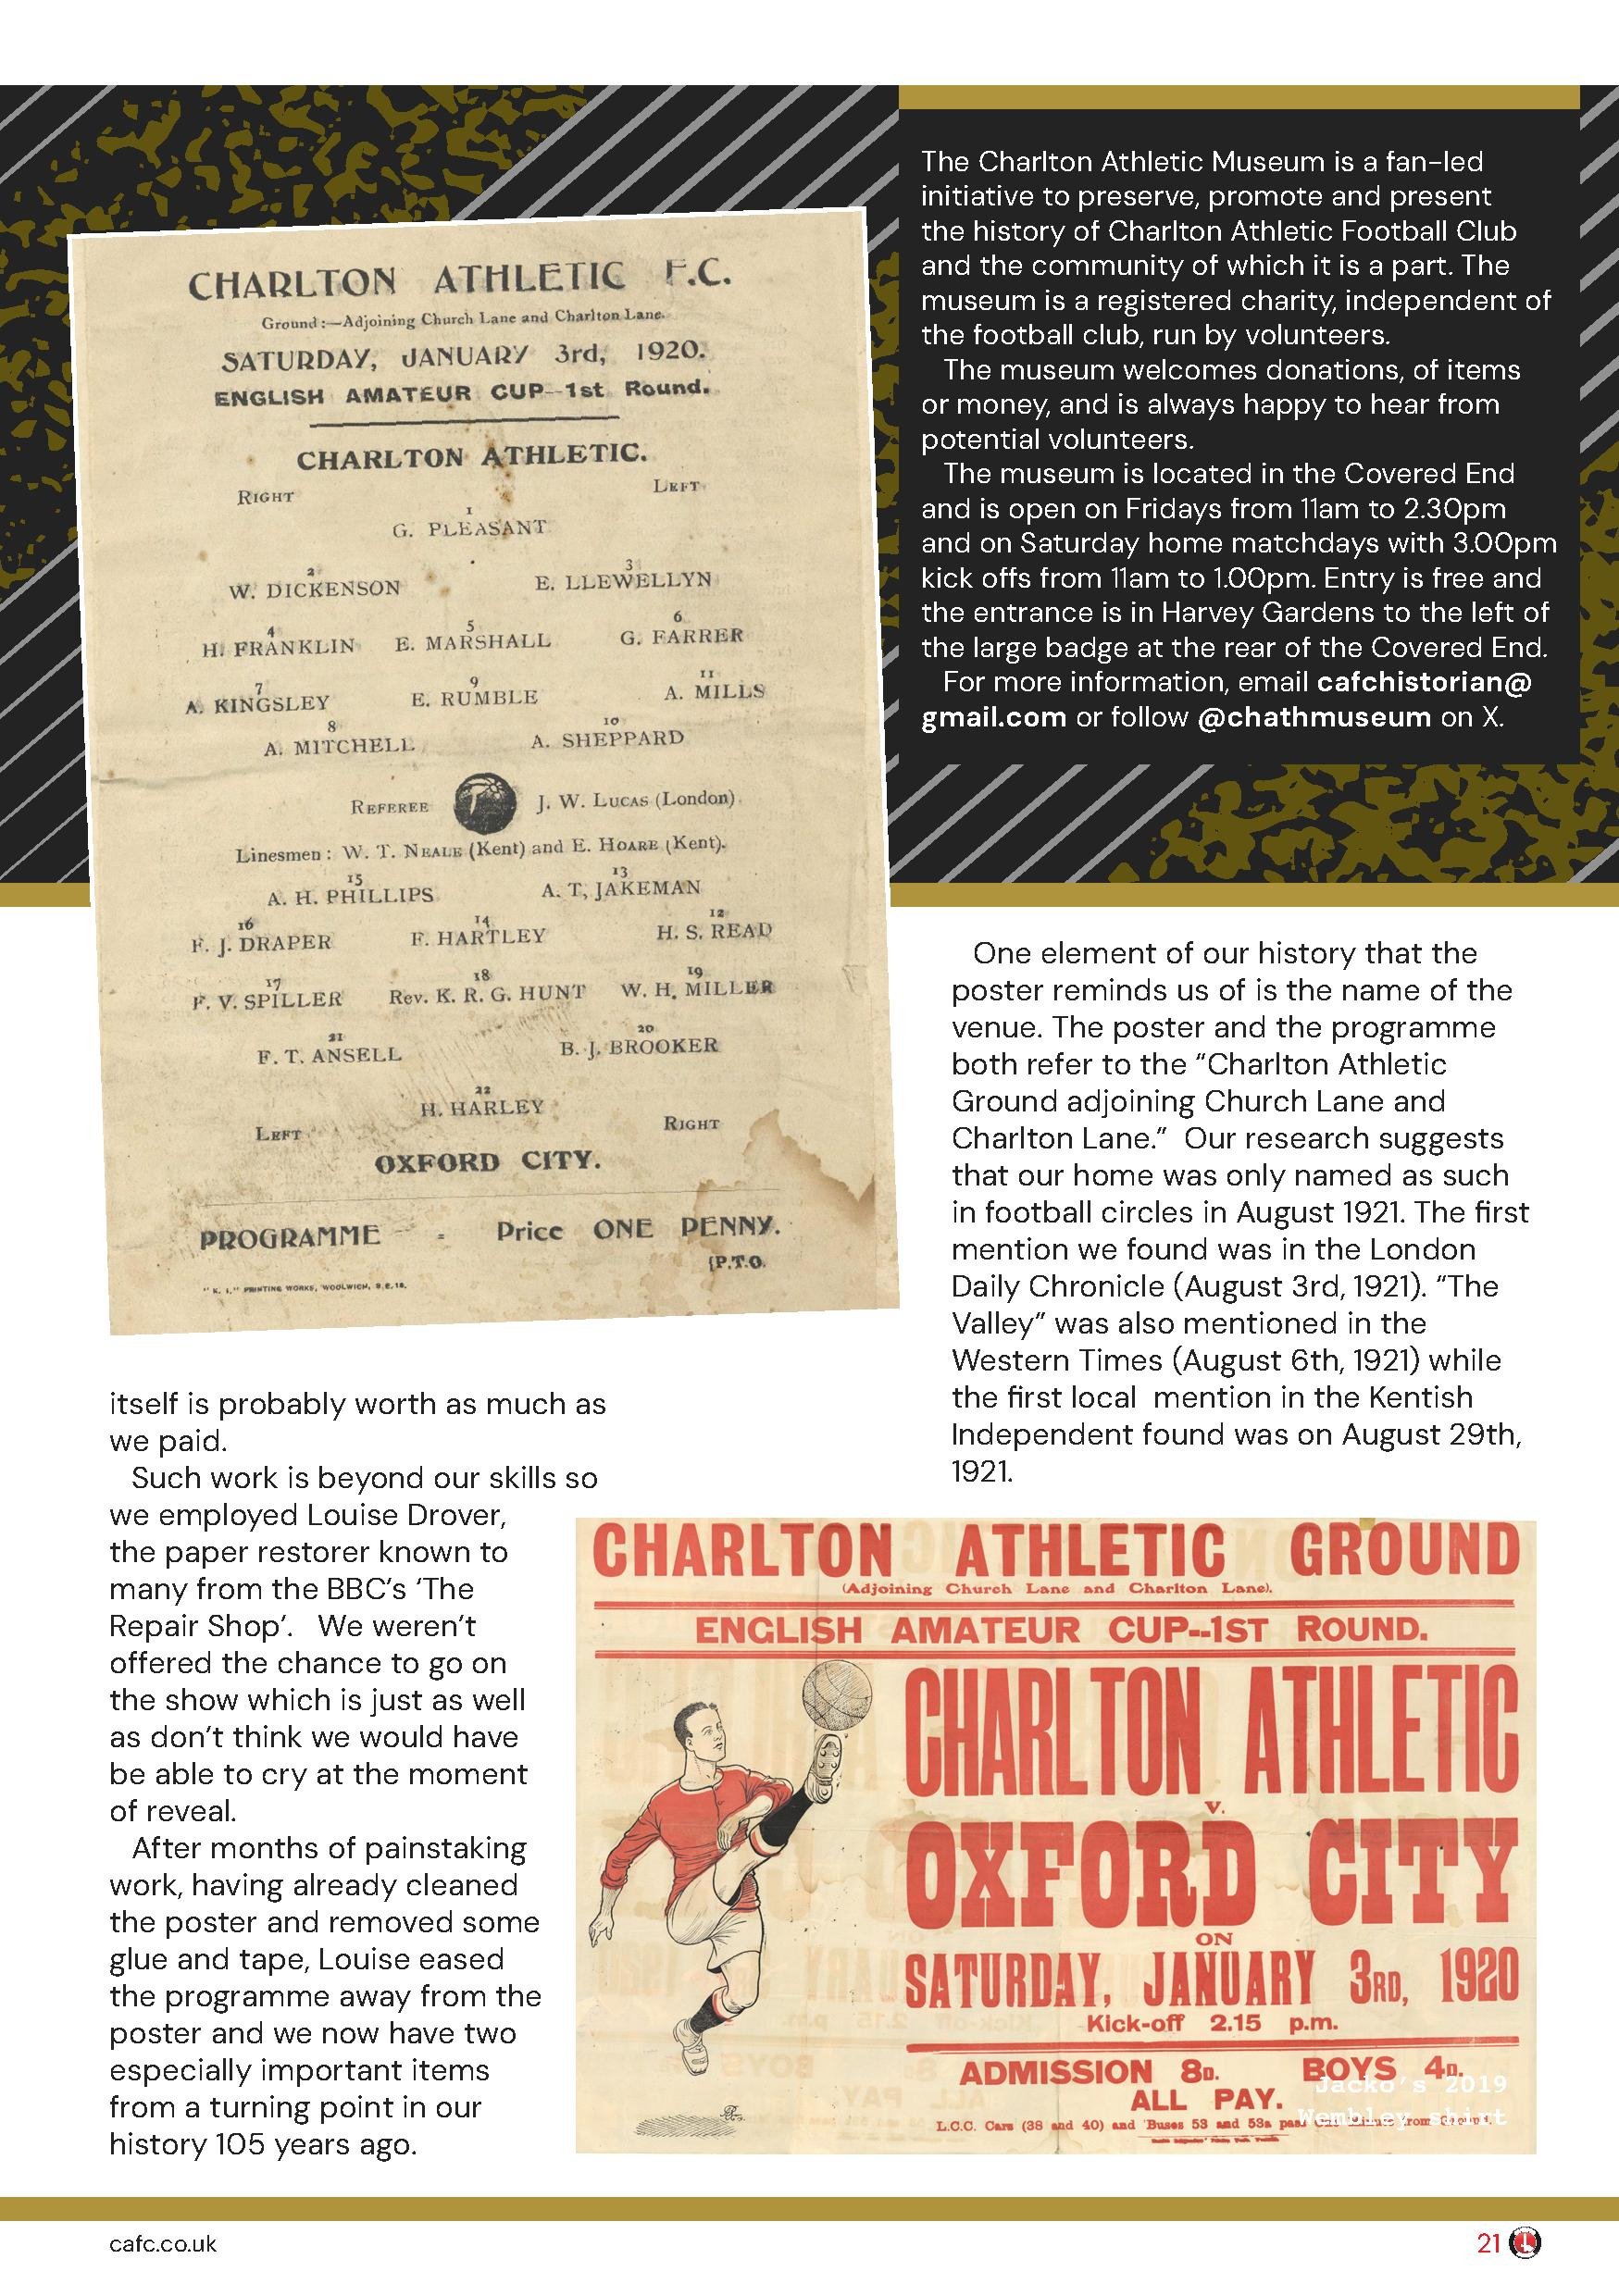 The Charlton Athletic Museum is a fan-led
initiative to preserve, promote and present
the history of Charlton Athletic Football Club
and the community of which it is a part. The
museum is a registered charity, independent of
the football club, run by volunteers.
The museum welcomes donations, of items
or money, and is always happy to hear from
potential volunteers.
The museum is located in the Covered End
and is open on Fridays from 11am to 2.30pm
and on Saturday home matchdays with 3.00pm
kick offs from 11am to 1.00pm. Entry is free and
the entrance is in Harvey Gardens to the left of
the large badge at the rear of the Covered End.
For more information, email cafchistorian@
gmail.com or follow @chathmuseum on X.
CHARLTON ATHLETIC F.C.
Ground :—Adjoining Church Lane and Charlton Lane.
SATURDAY, JANUARY 3rd, 1920.
ENGLISH AMATEUR CUP--1st Round.
CHARLTON ATHLETIC.
RIGHT LEFT
1
G. PLEASANT
2 3
W. DICKENSON E. LLEWELLYN
4 5 6
H. FRANKLIN E. MARSHALL G. FARRER
7 9 11
A. KINGSLEY E. RUMBLE A. MILLS
8 10
A. MITCHELL A. SHEPPARD
REFEREE J. W. LUCAS (London)
Linesmen : W. T. NEALE (Kent) and E. HOARE (Kent).
15 13
A. H. PHILLIPS A. T. JAKEMAN
16 14 12
F. J. DRAPER F. HARTLEY H. S. READ
17 18 19
F. V. SPILLER Rev. K. R. G. HUNT W. H. MILLER
21 20
F. T. ANSELL B. J. BROOKER
22
H. HARLEY
LEFT RIGHT
OXFORD CITY.
PROGRAMME - Price ONE PENNY.
(P.T.O.
"K. I." PRINTING WORKS, WOOLWICH, S.E.18.
itself is probably worth as much as
we paid.
Such work is beyond our skills so
we employed Louise Drover,
the paper restorer known to
many from the BBC's 'The
Repair Shop'. We weren't
offered the chance to go on
the show which is just as well
as don't think we would have
be able to cry at the moment
of reveal.
After months of painstaking
work, having already cleaned
the poster and removed some
glue and tape, Louise eased
the programme away from the
poster and we now have two
especially important items
from a turning point in our
history 105 years ago.
One element of our history that the
poster reminds us of is the name of the
venue. The poster and the programme
both refer to the “Charlton Athletic
Ground adjoining Church Lane and
Charlton Lane.” Our research suggests
that our home was only named as such
in football circles in August 1921. The first
mention we found was in the London
Daily Chronicle (August 3rd, 1921). “The
Valley” was also mentioned in the
Western Times (August 6th, 1921) while
the first local mention in the Kentish
Independent found was on August 29th,
1921.
CHARLTON ATHLETIC GROUND
(Adjoining Church Lane and Charlton Lane).
ENGLISH AMATEUR CUP--1ST ROUND.
CHARLTON ATHLETIC
v.
OXFORD CITY
ON
SATURDAY, JANUARY 3RD, 1920
Kick-off 2.15 p.m.
ADMISSION 8D. BOYS 4D.
ALL PAY.
L.C.C. Cars (38 and 40) and 'Buses 53 and 53a pass from Ground.
Jacko's 2019
Wembley shirt
cafc.co.uk
21